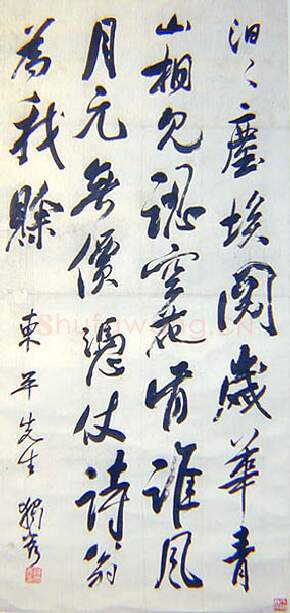 汩〻塵埃閱歲華青
山相見空花誰風
月元無價憑仗詩翁
為我賒
東平先生 獨秀
Shufawang.cn